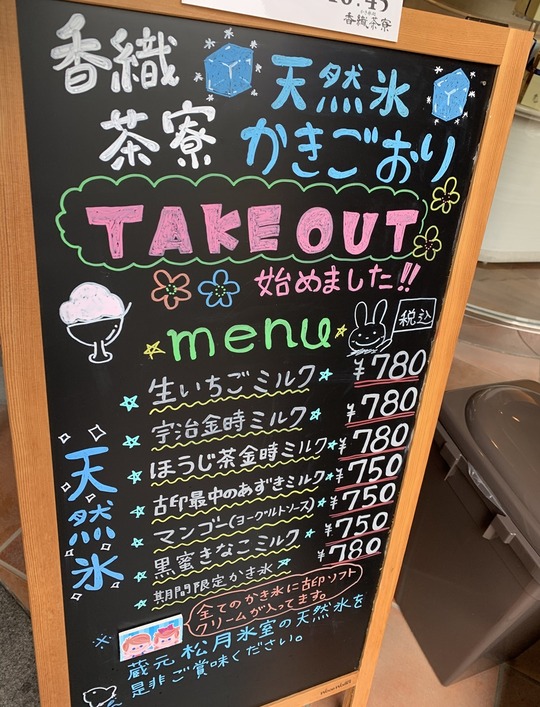 香織茶寮
香織
茶寮
天然氷
かきごおり
TAKE OUT
始めました!!
menu
税込
天然氷
生いちごミルク ¥780
宇治金時ミルク ¥780
ほうじ茶金時ミルク ¥780
古印最中のあずきミルク ¥750
マンゴー(ヨーグルトソース) ¥750
黒蜜きなこミルク ¥750
期間限定かき氷 ¥780
全てのかき氷に古印ソフト
クリームが入ってます。
※
蔵元 松月氷室の天然氷を
是非ご賞味ください。